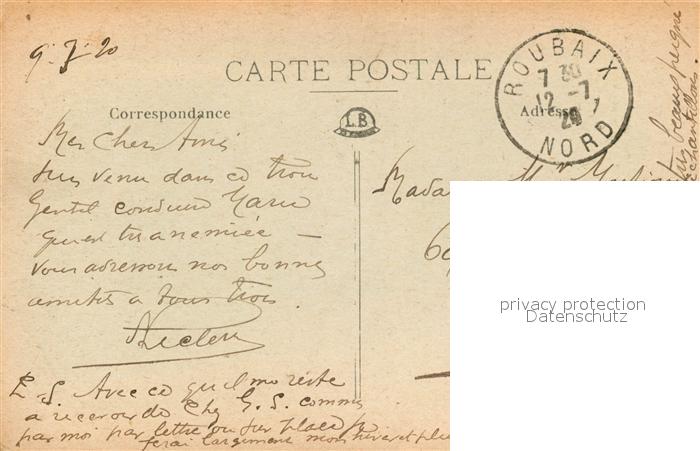 9-7-20
CARTE POSTALE
Correspondance
Adresse
L.B
ROUBAIX
7 30
12 -7
20
NORD
Mes chers Amis
suis venu dans ce trou
gentil conduire Marie
qui est tres anemiée —
vous adressons nos bonnes
amities a tous trois.
Leclerc
Madame
69
P. S. Avec ce qu il me reste
a recevoir de chez G. S. comme
par moi par lettre ou sur place je
ferai largement mon hiver et plus
privacy protection
Datenschutz